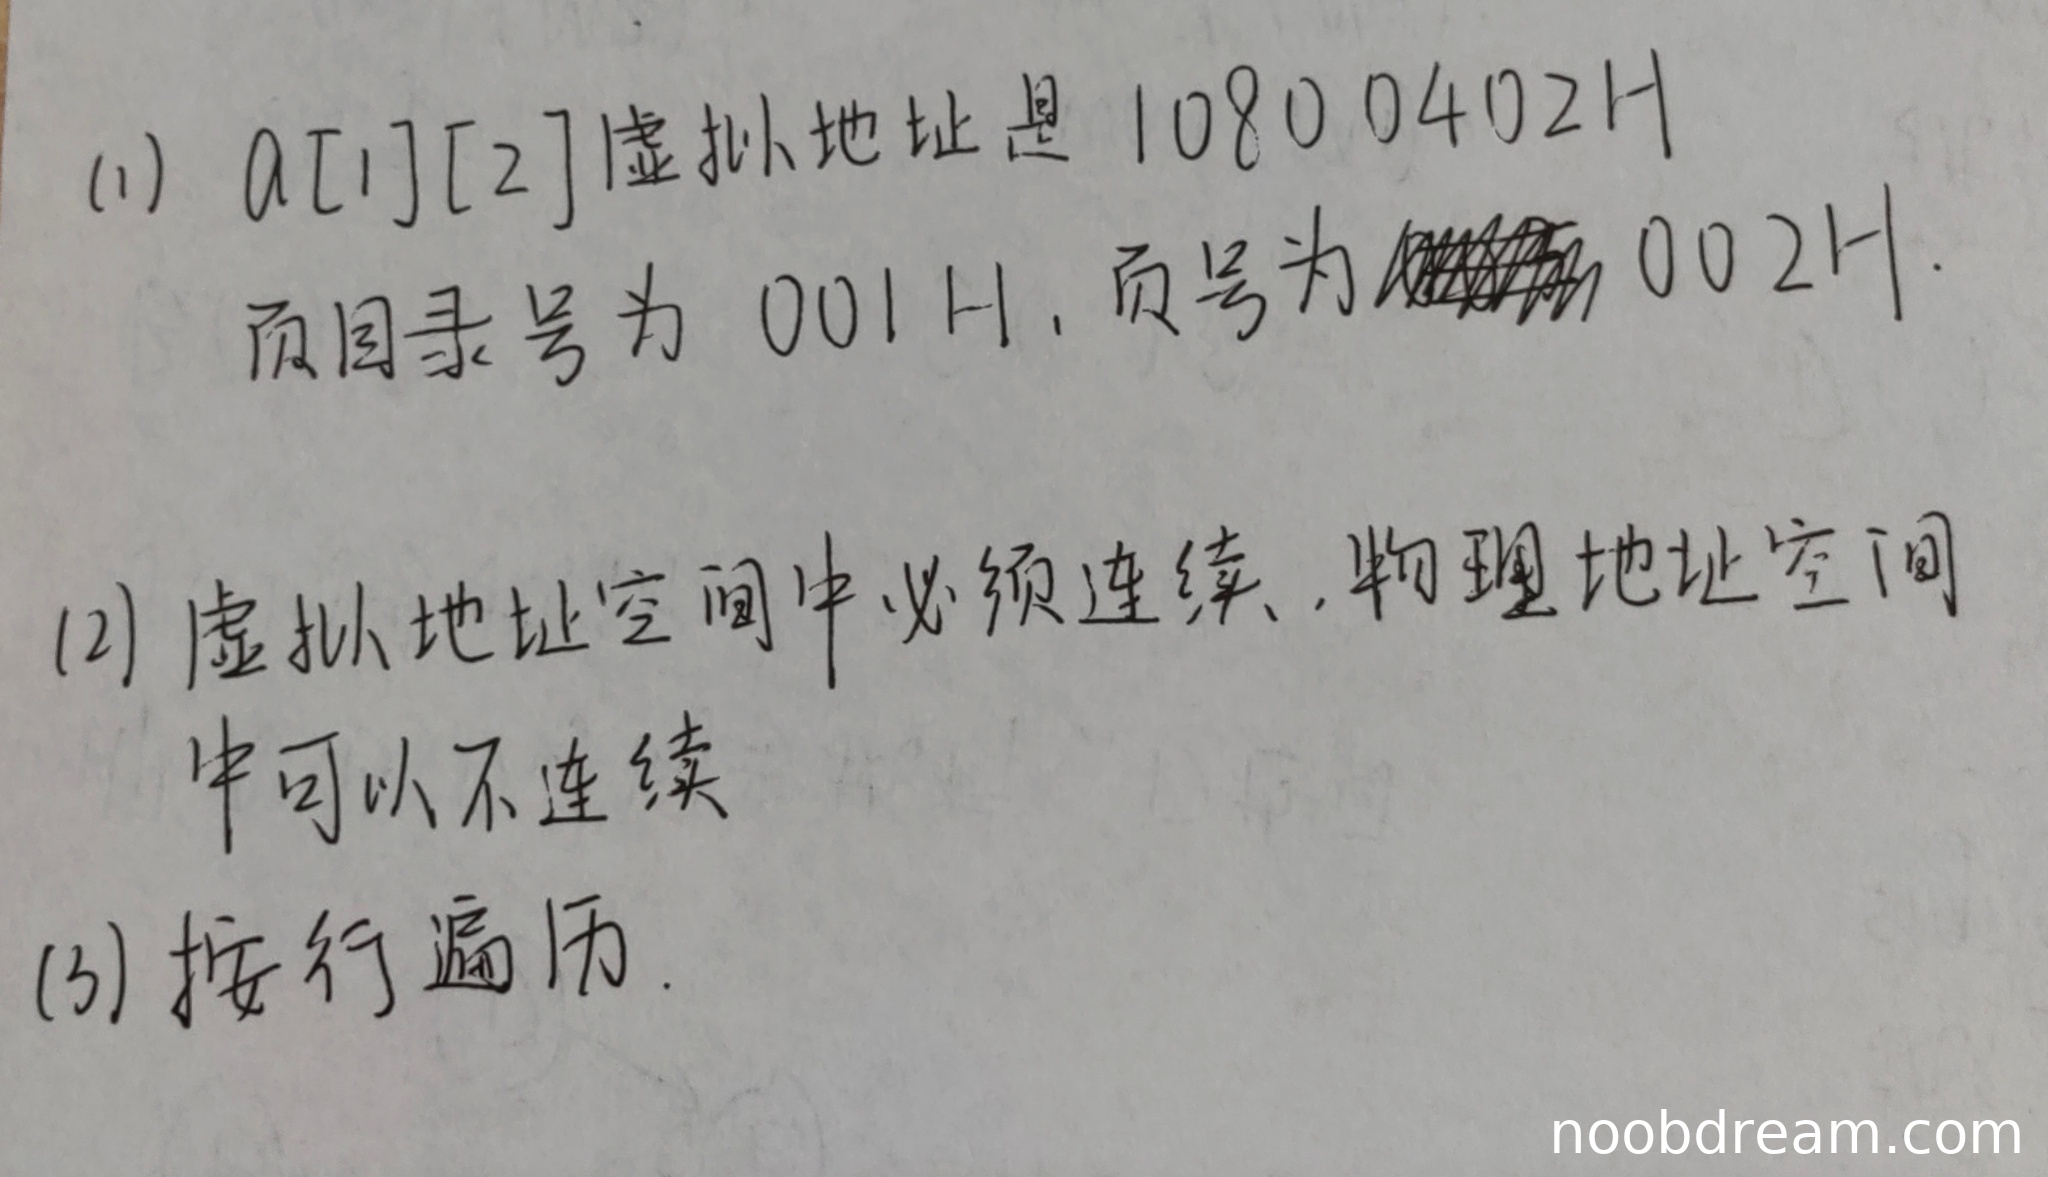 (1) a[1][2]虚拟地址是10800402H
页目录号为 001H, 页号为 002H.
(2) 虚拟地址空间中必须连续, 物理地址空间
中可以不连续
(3) 按行遍历.
noobdream.com